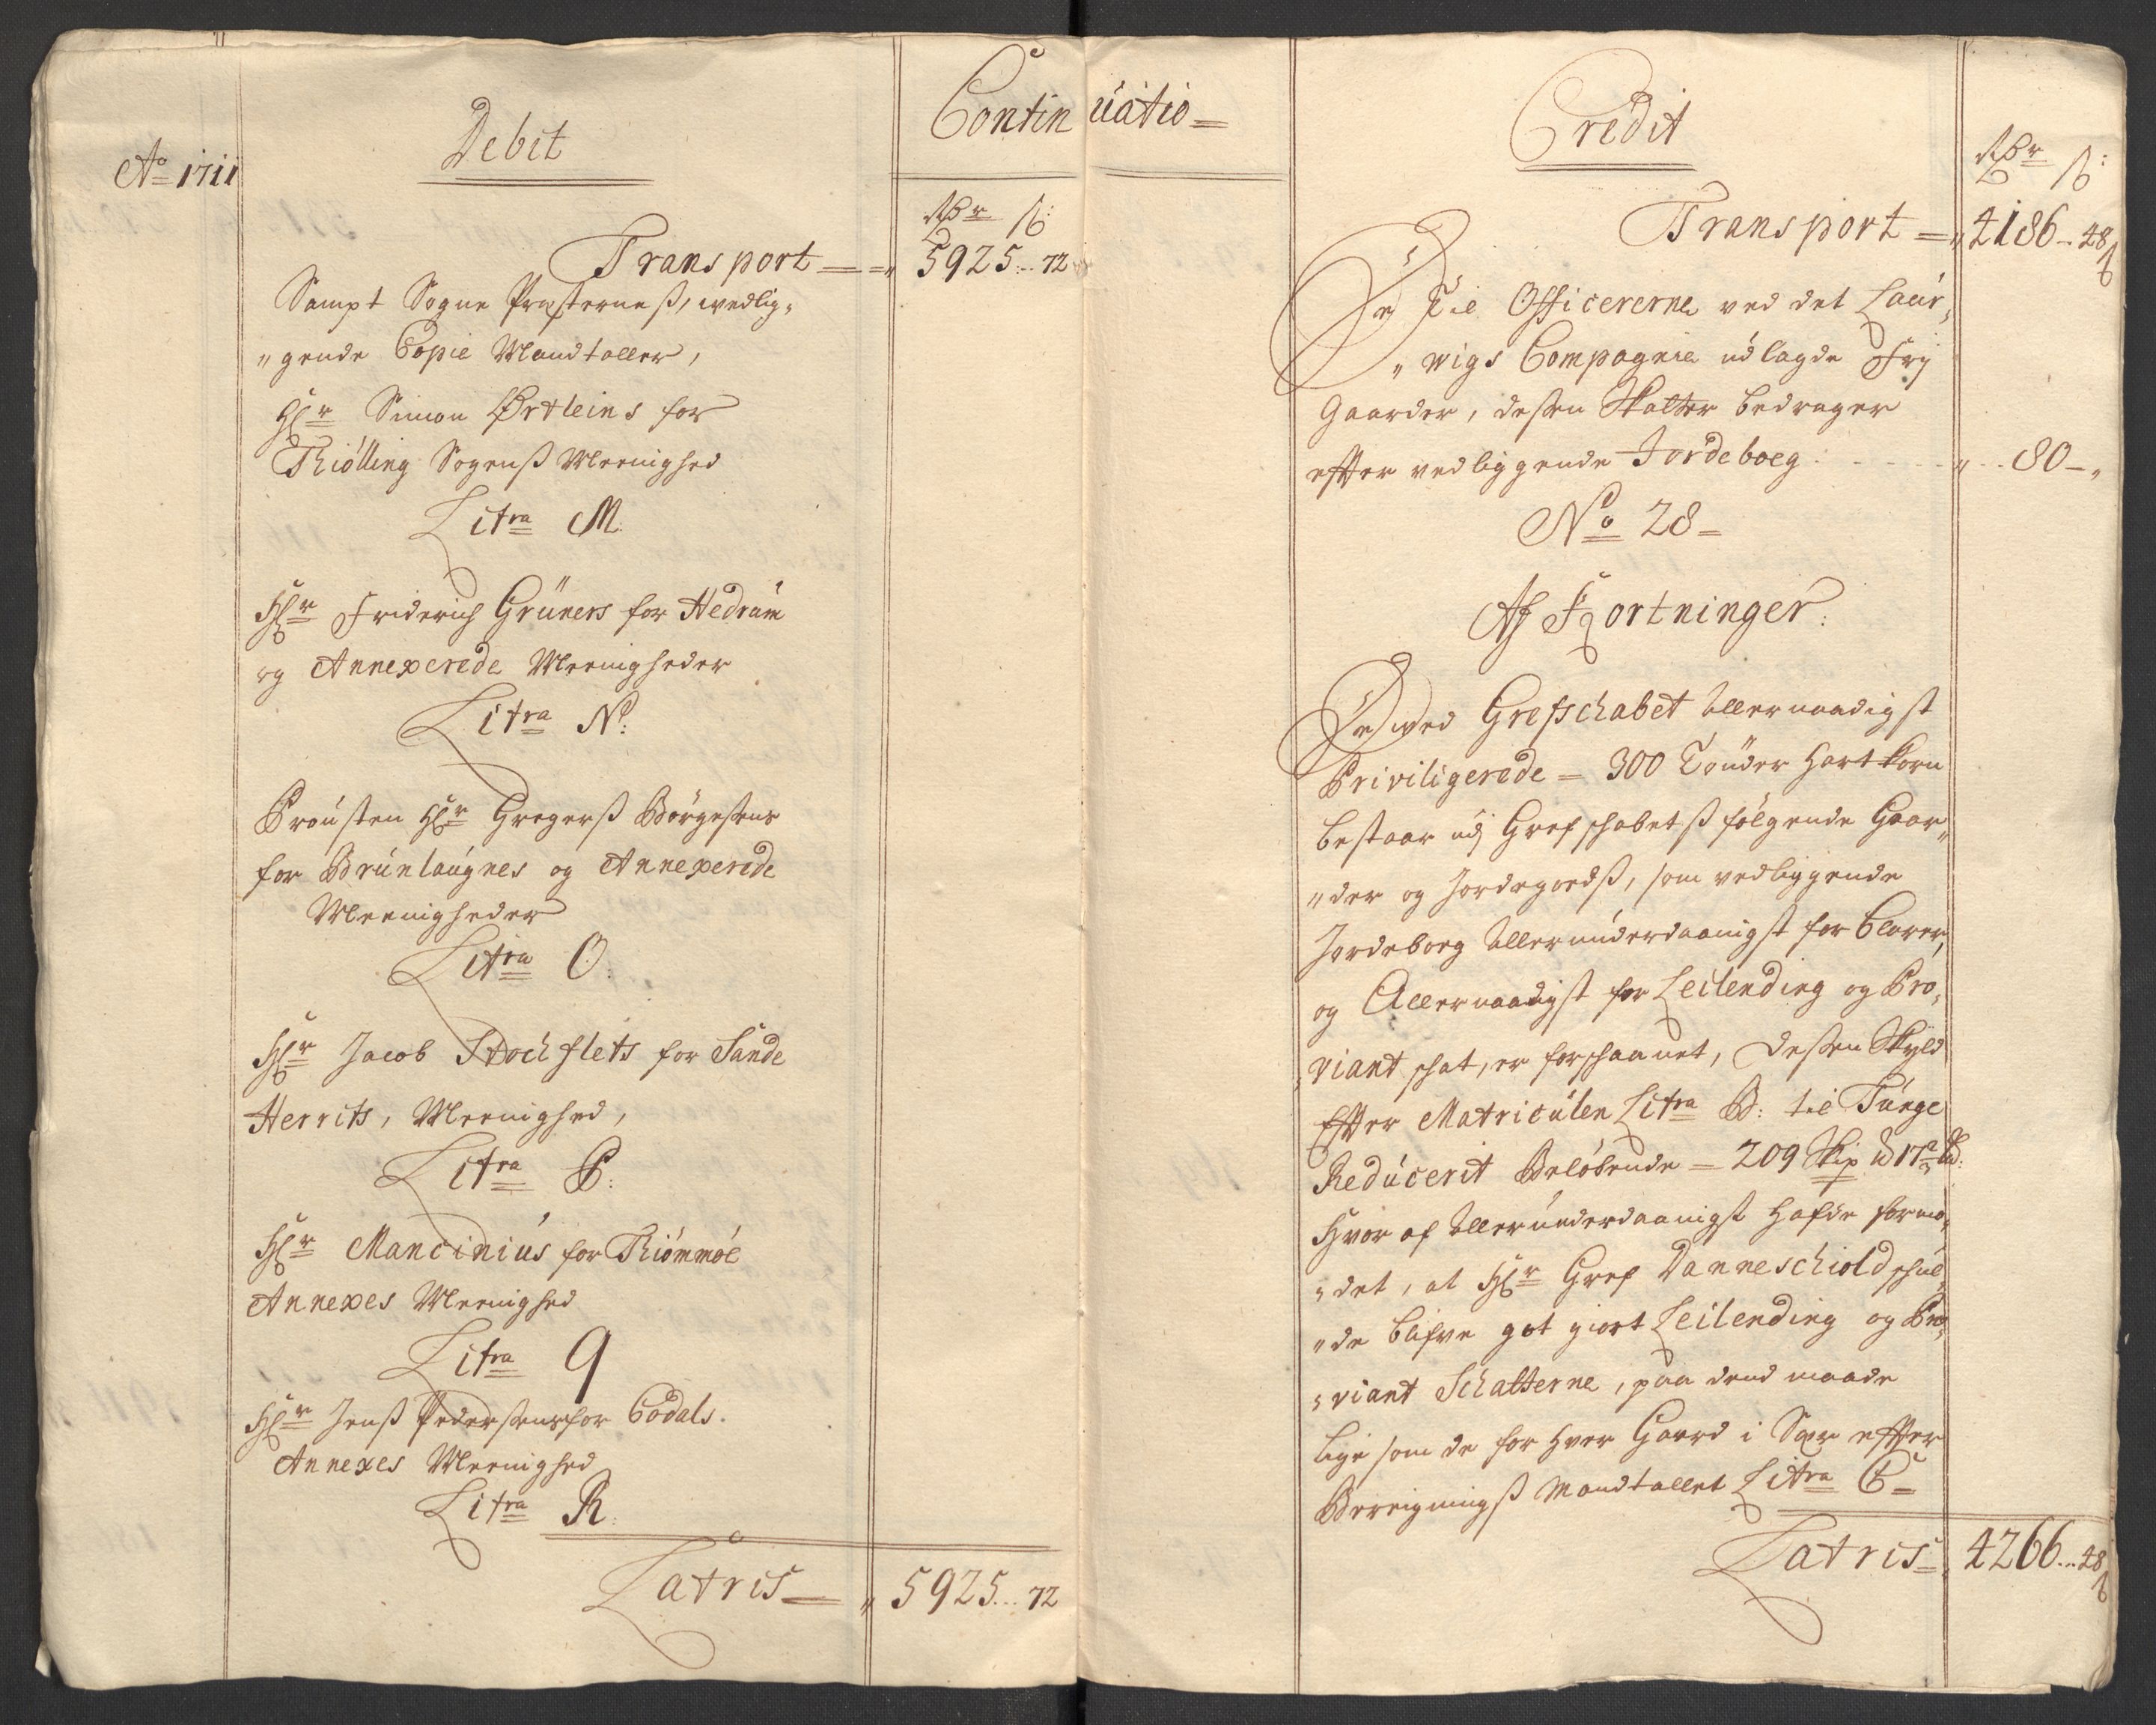 Continuatio
Ao 1711
Debit
Rdr ß:
Transport 5925 .. 72
Sampt Sogne Præsterneß, wedlig„
„gende Copie Mandtaller,
Hr Simon Ørtleins for
Thiølling Sogenß Meenighed
Litra M.
Hr Friderich Grüners for Hedrum
og Annexerede Meenigheder
Litra N:
Proústen Hr Gregerß Børgesens
for Brúnlaúgnes og Annexerede
Meenigheder
Litra O:
Hr Jacob Stochflets for Sande
Herrits, Meenighed,
Litra P:
Hr Mancinius for Thiømmøe
Annexes Meenighed
Litra Q
Hr Jenß Pedersens for Eødals.
Annexes Meenighed
Litra R:
Latris „ 5925 ... 72
Credit
Rdr ß:
Transport „ 4186 .. 48
De Til Officererne ved det Laúr„
„wigs Compagnie údlagde Frj
Gaarder, dessen Skatter bedrager
efter vedliggende Jordeboeg „ .. 80 „
No 28
Af Kortninger.
De wed Grefschabet Allernaadigst
Priviligerede 300 Tønder Hartkorn
bestaar údj Grefschabetß følgende Gaar„
„der og Jordegodß, som vedliggende
Jordeboeg Allerúnderdaanigst forClarer,
og Allernaadigst for Leilending og Pro„
„viant schat, er forschaanet, dessen Skyld
Efter Matriculen Litra B: til Túnge
Redúcerit Beløbende 209 Skip
Hvor af Allerúnderdaanigst hafde formo„
„det, at Hr Gref Danneschiold schúl„
„de blifve got giort Leilending og Pro„
„viant Schatterne, paa dend maade
lige som de for hver Gaard i Sær efter
Bereigningß Mandtallet Litra C
Latris „ 4266 ... 48